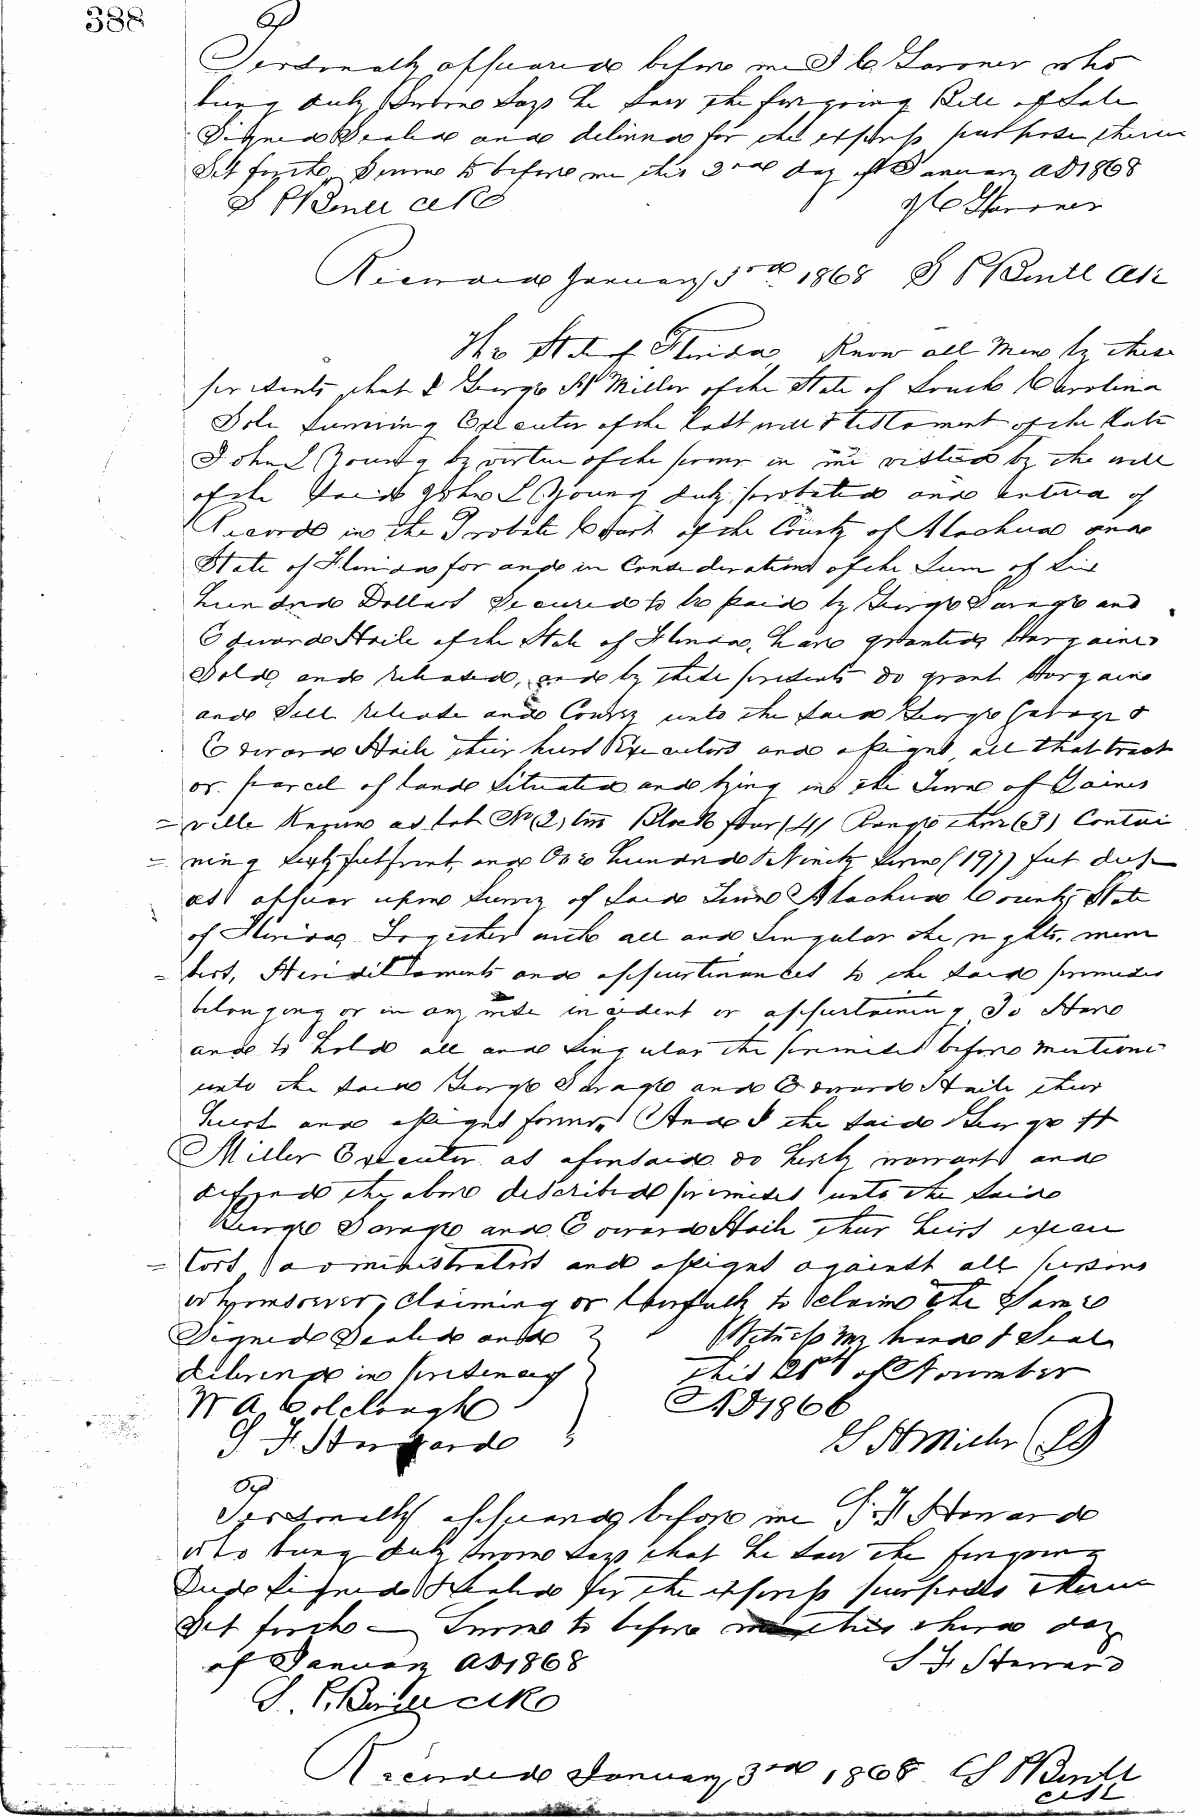 388
Personally appeared before me J C Garoner who
being duly Sworn Says he saw the foregoing Bill of Sale
Signed Sealed and delivered for the express purpose therein
Set forth Sworn to before me this 3rd day of January AD 1868
S P Clk
J C Garoner
Recorded January 3rd 1868 S P Clk
The State of Florida Know all Men by these
presents that I George H Miller of the State of South Carolina
Sole Surviving Executor of the last will & testament of the late
John L Young by virtue of the power in me vested by the will
of the said John L Young duly probated and entered of
Record in the Probate Court of the County of Alachua and
State of Florida for and in Consideration of the Sum of Six
hundred Dollars Secured to be paid by George Savage and
Edward Haile of the State of Florida, have granted, bargained
Sold, and released, and by these presents do grant bargain
and Sell release and Convey unto the said George Savage &
Edward Haile their heirs Executors and assigns, all that tract
or parcel of land Situated and lying in the Town of Gaines
=ville Known as Lot No (2) two Block four (4) Range three (3) Contai
=ning Sixty feet front, and One hundred & Ninety Seven (197) feet deep
as appear upon Survey of Said Town Alachua County State
of Florida, Together with all and Singular the rights, mem
=bers, Hereditaments and appurtenances to the said premises
belonging or in any wise incident or appertaining To Have
and to hold all and Singular the premises before mentioned
unto the said George Savage and Edward Haile their
heirs and assigns forever, And I the said George H
Miller Executor as aforesaid do hereby warrant and
defend the above described premises unto the said
George Savage and Edward Haile their heirs execu
=tors, administrators and assigns against all persons
whomsoever, claiming or lawfully to claim the Same
Signed Sealed and
delivered in presence of
W A Colclough
S F Howard
Witness my hand & Seal
this 21st of November
AD 1866
G H Miller LS
Personally appeared before me S. F. Howard
who being duly sworn says that he saw the foregoing
Deed Signed & Sealed for the express purposes therein
Set forth — Sworn to before me this third day
of January AD 1868
S F Howard
S. P. Clk
Recorded January 3rd 1868 S P
Clk